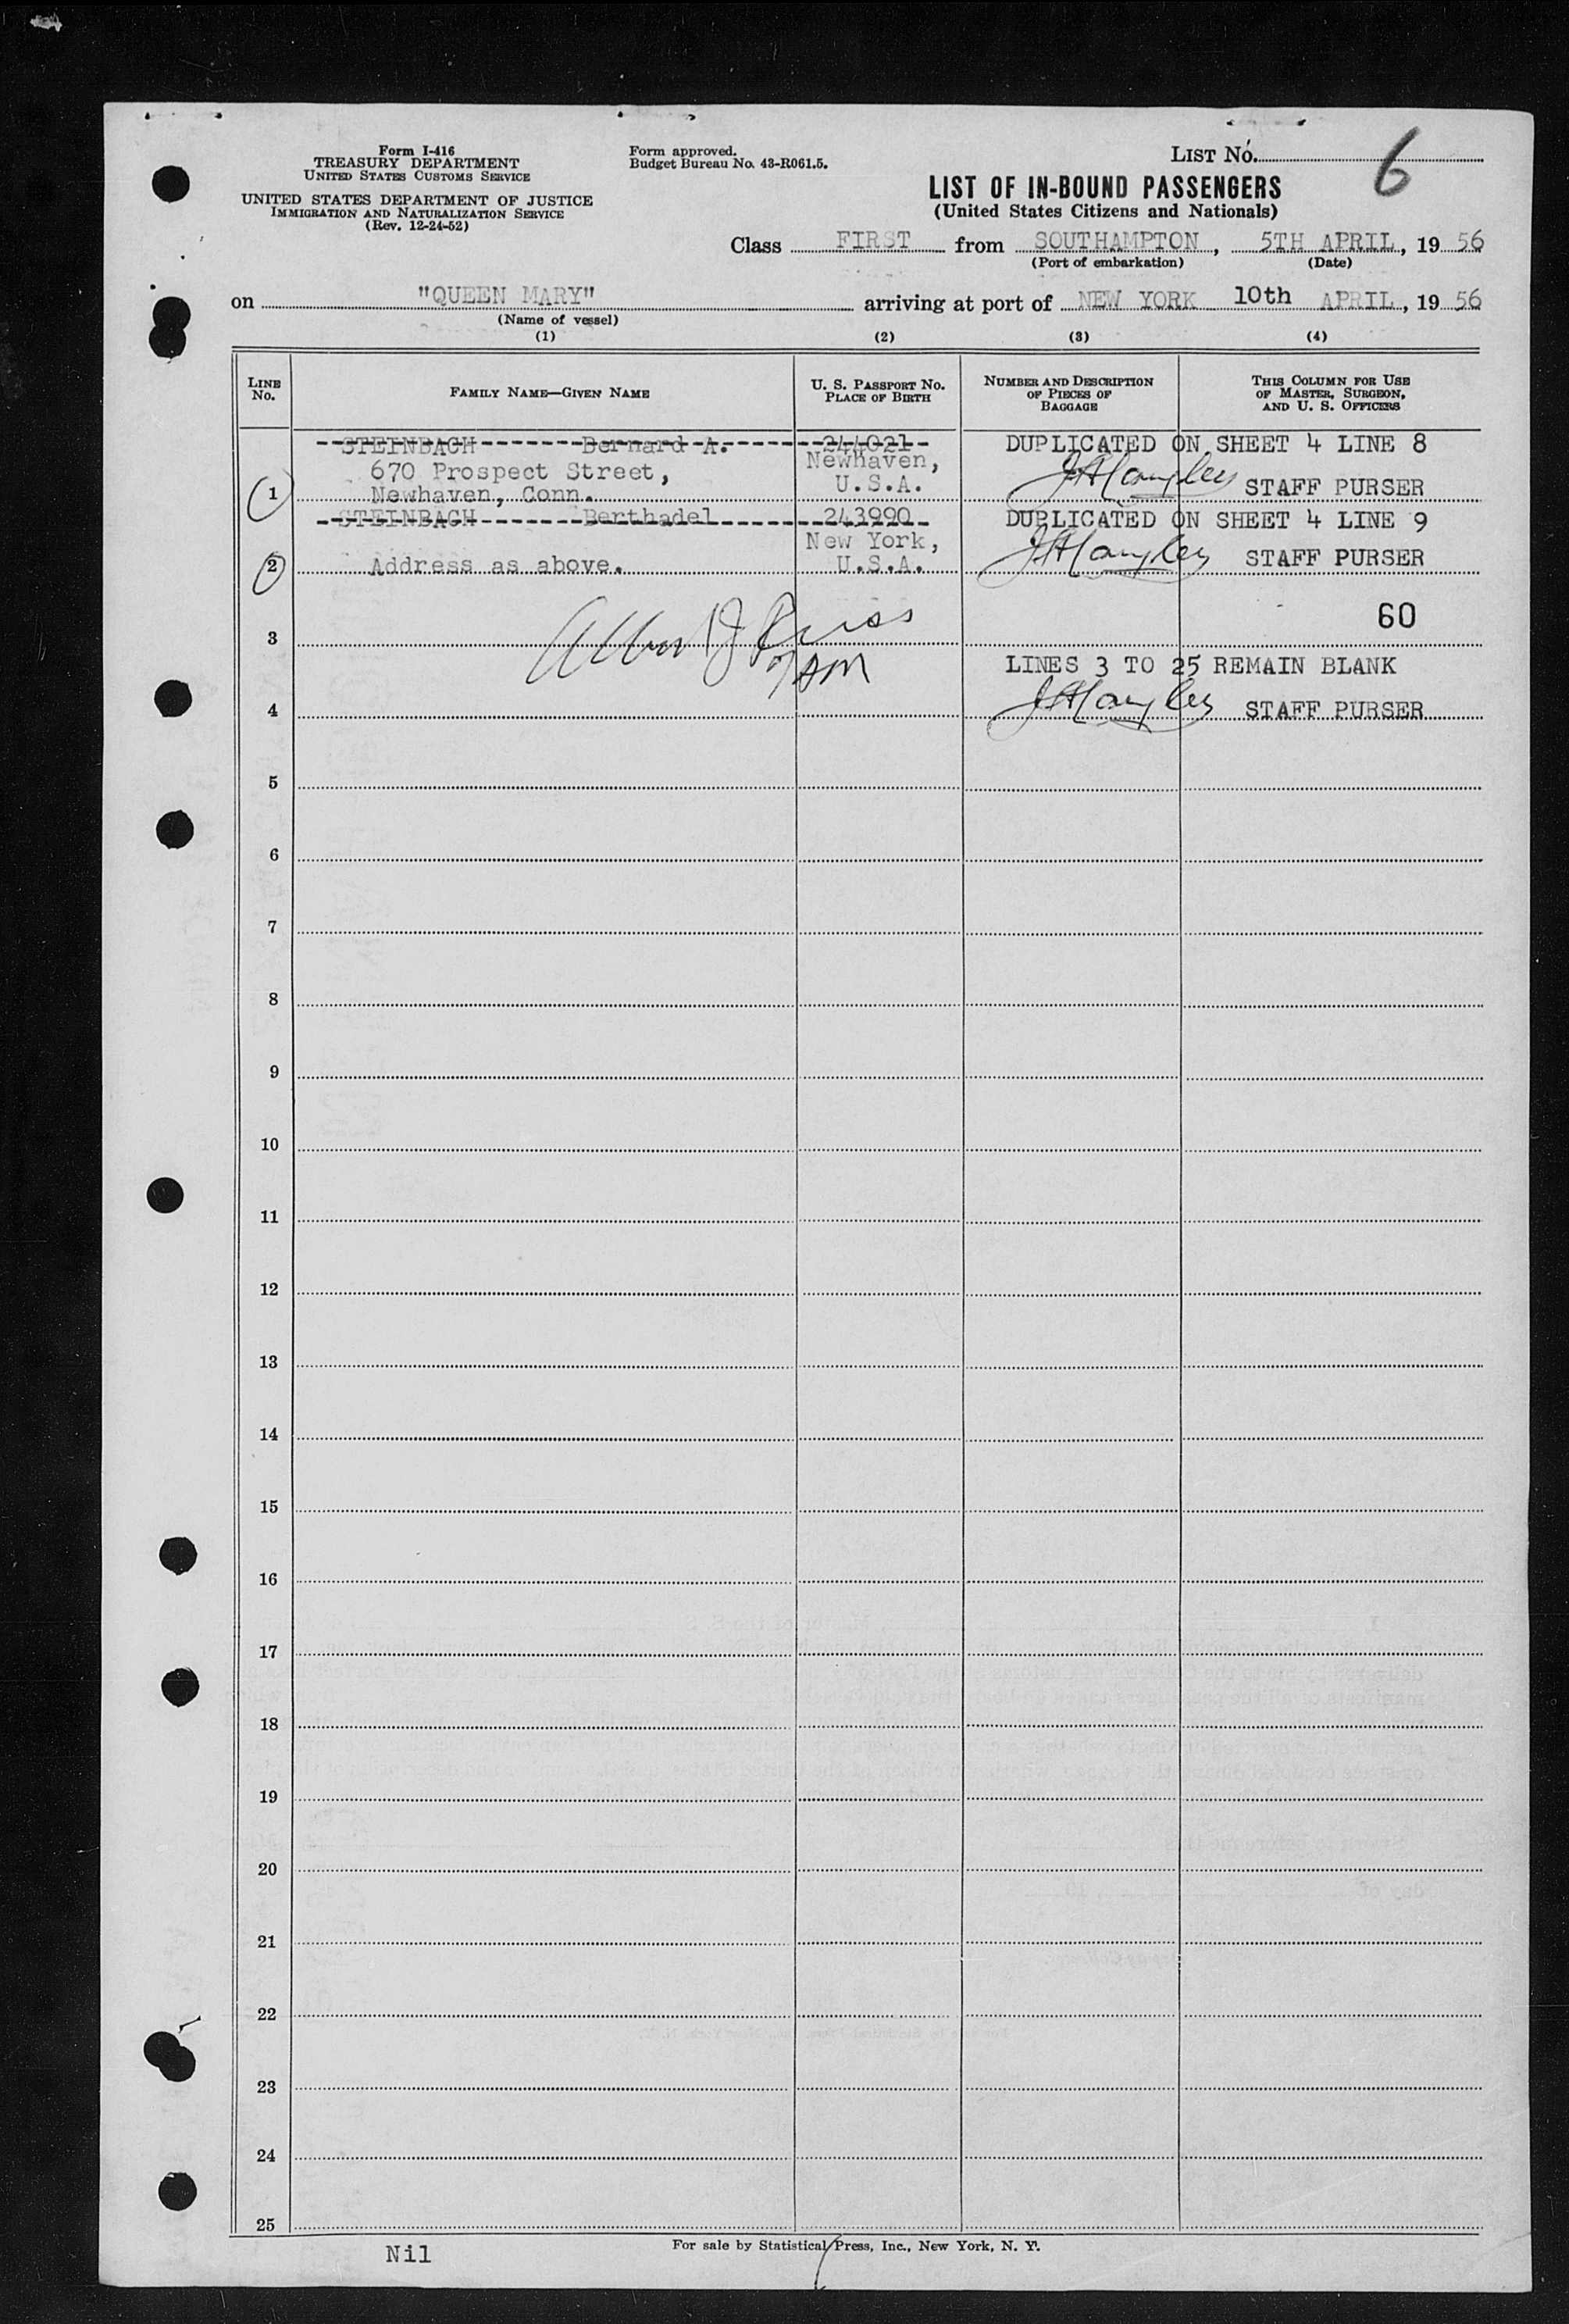 Form I-416
TREASURY DEPARTMENT
UNITED STATES CUSTOMS SERVICE
UNITED STATES DEPARTMENT OF JUSTICE
IMMIGRATION AND NATURALIZATION SERVICE
(Rev. 12-24-52)
Form approved.
Budget Bureau No. 43-R061.5.
LIST No. 6
LIST OF IN-BOUND PASSENGERS
(United States Citizens and Nationals)
Class FIRST from SOUTHAMPTON, 5TH APRIL, 19 56
(Port of embarkation) (Date)
on "QUEEN MARY" arriving at port of NEW YORK 10th APRIL, 19 56
(Name of vessel)
(1) (2) (3) (4)
LINE No.
FAMILY NAME—GIVEN NAME
U. S. PASSPORT NO.
PLACE OF BIRTH
NUMBER AND DESCRIPTION
OF PIECES OF
BAGGAGE
THIS COLUMN FOR USE
OF MASTER, SURGEON,
AND U. S. OFFICERS
STEINBACH Bernard A. 244021 DUPLICATED ON SHEET 4 LINE 8
670 Prospect Street, Newhaven,
1 Newhaven, Conn. U.S.A. STAFF PURSER
STEINBACH Berthadel 243990 DUPLICATED ON SHEET 4 LINE 9
New York,
2 Address as above. U.S.A. STAFF PURSER
60
3
LINES 3 TO 25 REMAIN BLANK
4 STAFF PURSER
5
6
7
8
9
10
11
12
13
14
15
16
17
18
19
20
21
22
23
24
25
Nil
For sale by Statistical Press, Inc., New York, N. Y.